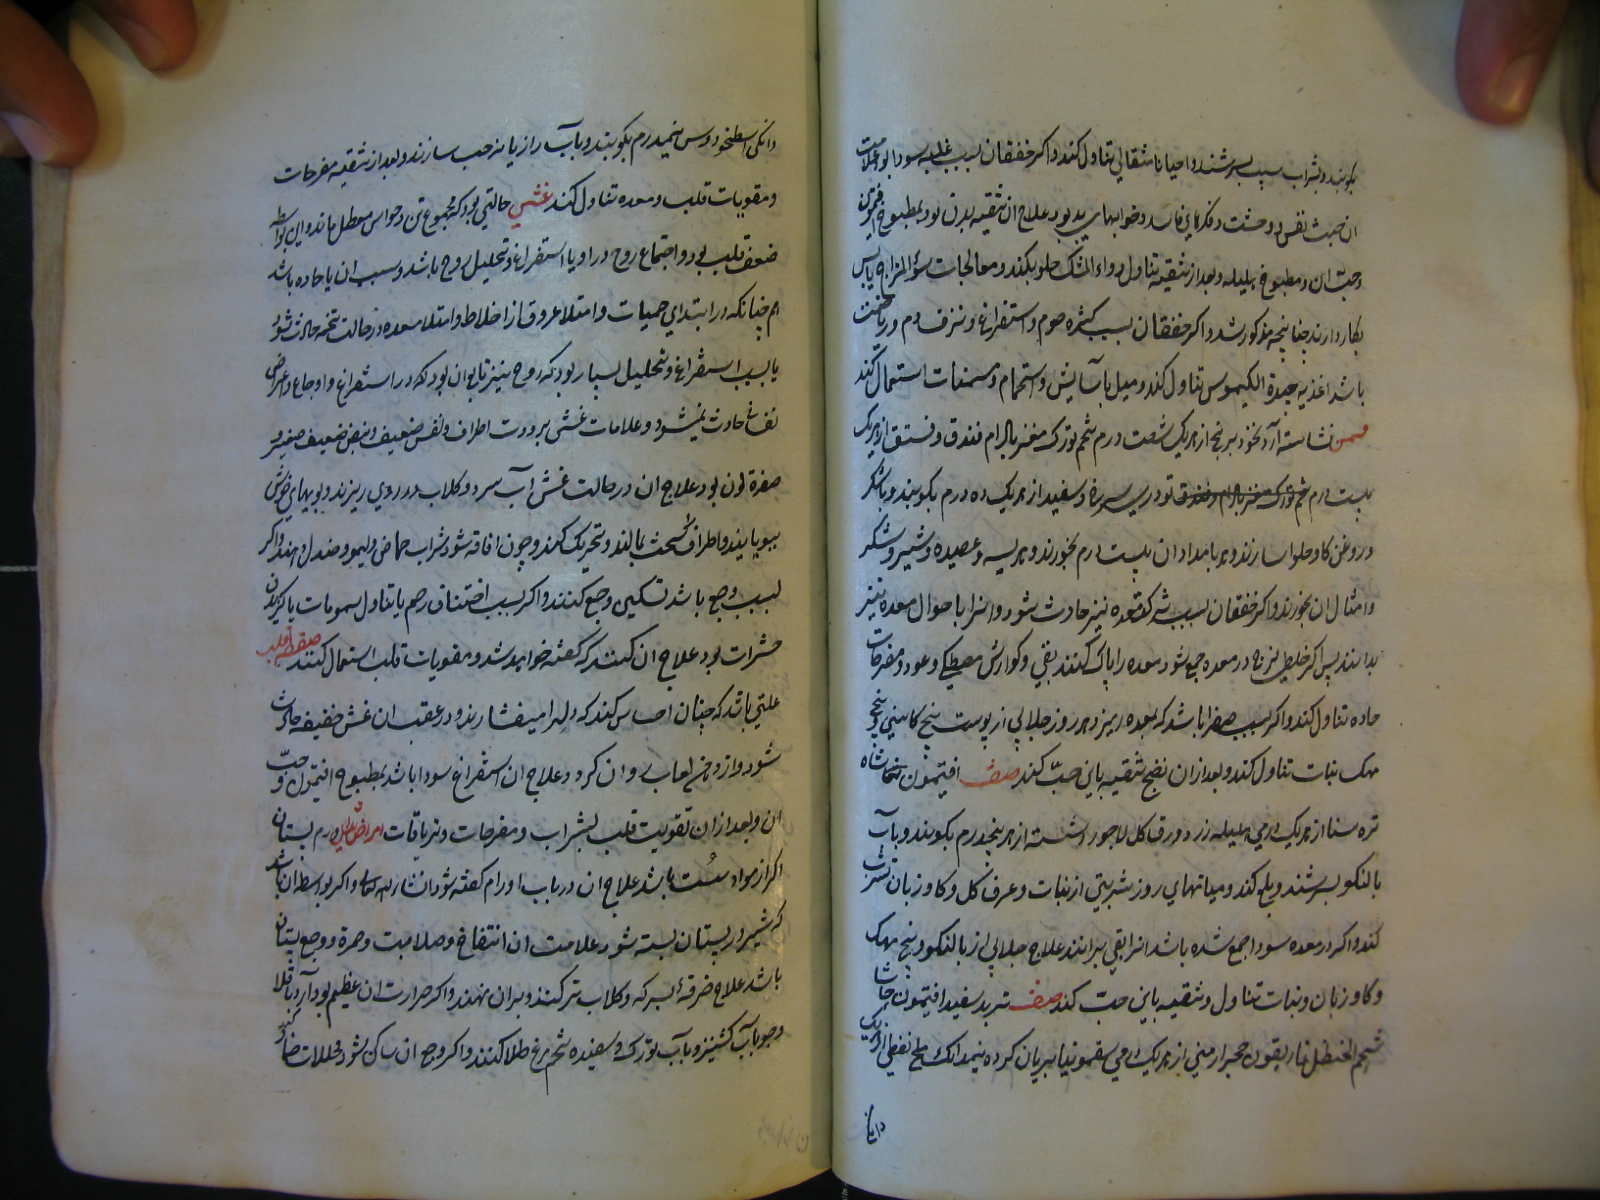 بکوبند و بشراب سیب بسرشند و احیانا مثقالی تناول کنند و اکر خفقان بسبب غلبه سودا بود علامت
ان خبث نفس و وحشت و فکرهای فاسد و خوابهای بد بود علاج ان تنقیه بدن بود بمطبوخ افتیمون
و حب ان و مطبوخ هلیله و بعد از تنقیه تناول دواء المسک حلو بکنند و معالجات سوء المزاج یابس
بکار دارند چنانچه مذکور شد و اکر خفقان بسبب کثره صوم و استفراغ و نزف دم و ریاضت
باشد اغذیه جیدة الکیموس تناول کند و میل باسایش و استحمام و مسمنات استعمال کند
مسمن نشاسته آرد نخود برنج از هریک شصت درم تخم تورک مغز بادام فندق و فستق از هریک
بیست درم تودری سرخ و سفید از هریک ده درم بکوبند و با شکر
و روغن کاو حلوا سازند و هر بامداد ان بیست درم بخورند و هریسه و عصیده و شیر و شکر
و امثال ان بخورند و اکر خفقان بسبب شرکت معده نیز حادث شود و انرا باحوال معده نیز
بدانند پس اکر خلط لزج در معده جمع شود معده را پاک کنند بقی و کوارش مصطکی و عود و مفرحات
حاده تناول کند و اکر بسبب صفرا باشد که بمعده ریزد هر روز جلابی از پوست بیخ کاسنی و بیخ
مهک نبات تناول کند و بعد از ان نضج تنقیه باین حب کند صفت افتیمون شاه
تره سنا از هریک درمی هلیله زرد ورق کل لاجورد شسته از هر پنجدرم بکوبند و باب
بالنکو بسرشند و بلع کند و میانهای روز بشربتی از نبات و عرق کل و کاوزبان
کند و اکر در معده سودا جمع شده باشد انرا بقی برانند علاج جلابی از بالنکو و بیخ مهک
و کاوزبان و نبات تناول و تنقیه باین حب کند صفت تربد سفید افتیمون حاشا
شحم الحنظل غاریقون حجر ارمنی از هریک درمی سقمونیا بریان کرده نیمدانک ملح نفطی از هریک
دانکی
دانکی اسطخودوس نیمدرم بکوبند و باب رازیانه حب سازند و بعد از تنقیه مفرحات
و مقویات قلب و معده تناول کند غشی حالتی بود که مجموع تن و حواس معطل ماند و این بواسطه
ضعف قلب بود و اجتماع روح در او یا استفراغ و تحلیل روح باشد و سبب ان یا حاده باشد
هم چنانکه در ابتدای حمیات و امتلا عروق از اخلاط و امتلا معده در حالت تخمه حادث شود
یا بسبب استفراغ و تحلیل بسیار بود که روح نیز تابع ان بود که در استفراغ و اوجاع و اعراض
نفسانی حادث میشود و علامات غشی برودت اطراف و نفس ضعیف و نبض ضعیف صغیر و
صفرة لون بود علاج ان در حالت غش آب سرد و کلاب در روی ریزند و بویهای خوش
ببویانند و اطراف سخت بمالند و تحریک کنند و چون افاقه شود شراب حماض و لیمو و صندل دهند و اکر
بسبب وجع باشد تسکین وجع کنند و اکر بسبب اختناق رحم یا تناول سمومات یا کزیدن
حشرات بود علاج ان کنند که کفته خواهد شد و مقویات قلب استعمال کنند ضغطة القلب
علتی باشد که چنان احساس کند که دلرا میفشارند و در عقب ان غش خفیف حادث
شود و از دهن لعاب روان کردد علاج ان استفراغ سودا باشد بمطبوخ افتیمون و حب
ان و بعد از ان تقویت قلب بشراب و مفرحات و تریاقات امراض ثدی ورم پستان
اکر از مواد باشد علاج ان در باب اورام کفته شود انشاء الله تعالی و اکر بواسطه ان باشد
که شیر در پستان بسته شود علامت ان انتفاخ و صلابت و حمرة و وجع پستان
باشد علاج خرقه بسرکه و کلاب تر کنند و بران نهند و اکر حرارت ان عظیم بود آرد باقلا
و جو باب کشنیز و باب تورک و سفیده تخم مرغ طلا کنند و اکر وجع ان ساکن نشود محللات ضماد کنند